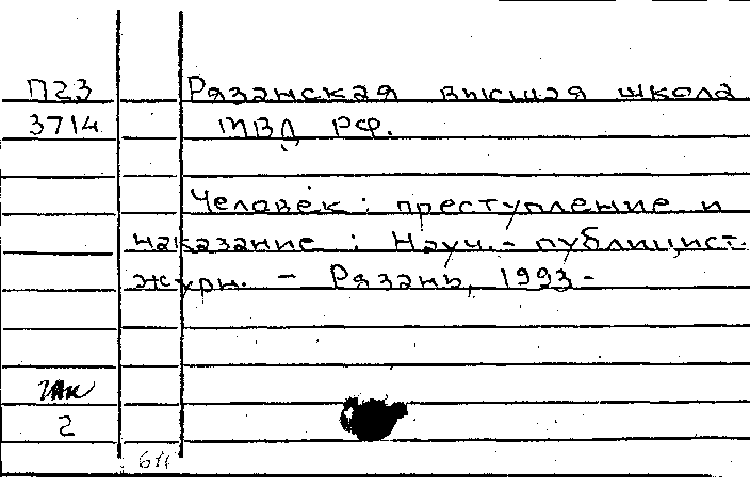 П23 Рязанская высшая школа
3714 МВД РФ.
Человек: преступление и
наказание: Науч.- публицист.
журн. - Рязань, 1993-
2